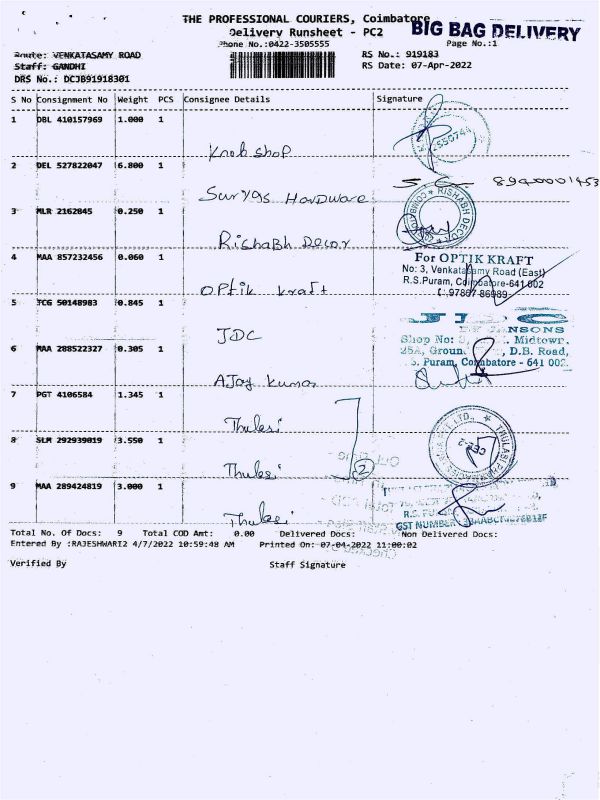 THE PROFESSIONAL COURIERS, Coimbatore
BIG BAG DELIVERY
Delivery Runsheet - PC2
Phone No.:0422-3505555
Page No.:1
Route: VENKATASAMY ROAD
RS No.: 919183
Staff: GANDHI
RS Date: 07-Apr-2022
DRS No.: DCJB91918301
S No Consignment No Weight PCS Consignee Details Signature
1 DBL 410157969 1.000 1
Knob shop
2 DEL 527822047 6.800 1
Suryas Hardware
8940001453
3 MLR 2162845 0.250 1
RISHABH DECOR
Rishabh Decor
4 MAA 857232456 0.060 1
For OPTIK KRAFT
No: 3, Venkatasamy Road (East)
R.S.Puram, Coimbatore-641 002
Optik kraft
5 TCG 50148983 0.845 1
JDC
JANSONS
Shop No: Midtown.
6 MAA 288522327 0.305 1
25A, Groun , D.B. Road,
Puram, Coimbatore - 641 002.
Ajay Kumar
7 PGT 4106584 1.345 1
Thulasi
8 SLM 292939019 3.550 1
Thulasi
2
9 MAA 289424819 3.000 1
Thulasi
GST NUMBER
Total No. Of Docs: 9 Total COD Amt: 0.00 Delivered Docs: Non Delivered Docs:
Entered By :RAJESHWARI2 4/7/2022 10:59:48 AM Printed On: 07-04-2022 11:00:02
Verified By Staff Signature